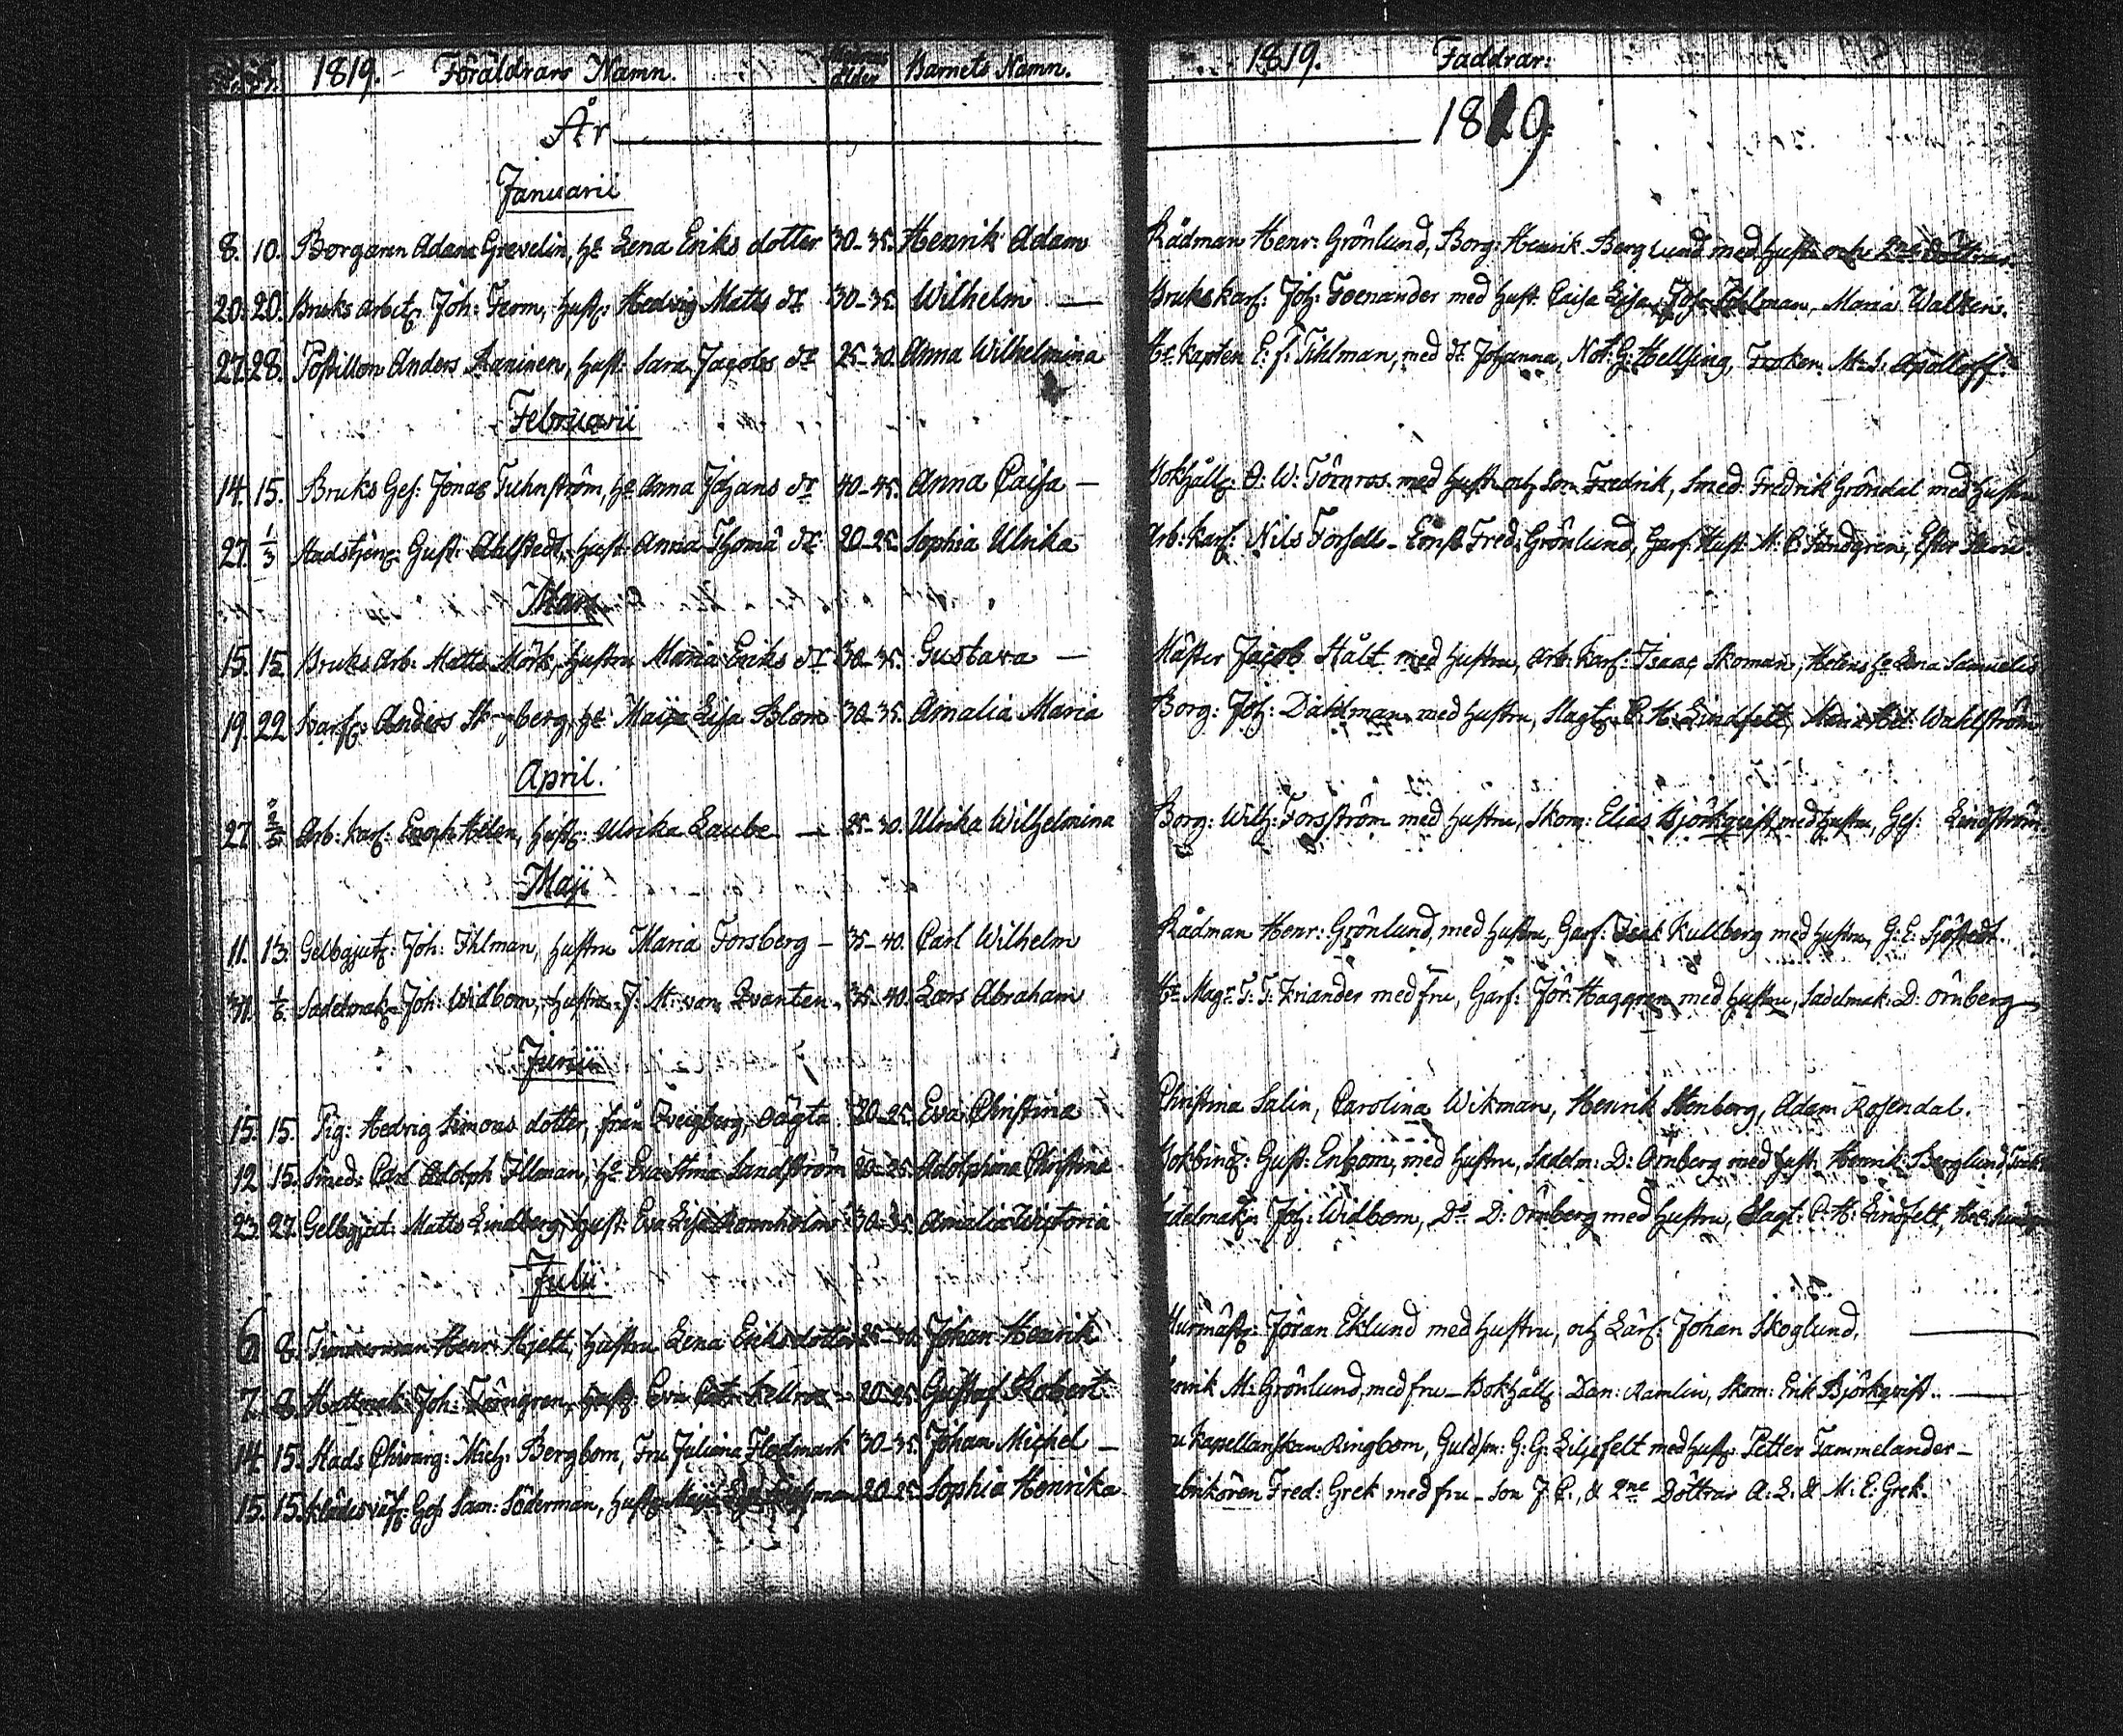 1819. Föräldrars Namn. ålder Barnets Namn.
År
Januarii
8. 10. Borgaren Adam Grevelin, he Lena Eriks dotter 30-35. Henrik Adam
20. 20. Bruks arbet: Joh: Ferm, hust: Hedvig Matts dr 30-35. Wilhelm —
27. 28. Postillon Anders Raninen, hust: Sara Jacobs dr 25-30. Anna Wilhelmina
Februarii
14. 15. Bruks Ges: Jonas Tuhnström, he Anna Johans dr 40-45. Anna Caisa —
27. 1/3 Stadstjen: Gust: Ahlstedt, hust: Anna Thomæ dr 20-25. Sophia Ulrika
Mars
15. 15. Bruks Arb: Matts Mörk, hustru Maria Eriks dr 30-35. Gustava —
19. 22. Anders berg, he Maija Lisa Blom 30-35. Amalia Maria
April.
27. 2/5 Arb: karl: Enoch Helen, hust: Ulrika Laube — 25-30. Ulrika Wilhelmina
Maji
11. 13. Gelbgjut: Joh: Ihlman, hustru Maria Forsberg — 35-40. Carl Wilhelm
31. 1/6 Sadelmak: Joh: Widbom, hustru J: M: von Qvanten. 35-40. Lars Abraham
Junii
15. 15. Pig: Hedvig Simons dotter, från Qveigberg, oägta 20-25. Eva Christina
12. 15. Smed: Carl Adolph Illman, he Eva Stina Sandström 20-25. Adolphina Christina
23. 27. Gelbgjut: Matts Lindberg, hust: Eva Lisa Rönnholm 30-35. Amalia Victoria
Julii
6. 8. Timmerman Henr: Hjelt, hustru Lena Eriks dotter 25-30. Johan Henrik
7. 8. Hattmak: Joh: Törngren, hust: Eva Cat: Kellroos 20-25. Gustaf Robert
14. 15. Stads Chirurg: Mich: Bergbom, Fru Juliana Flodmark 30-35. Johan Michel —
15. 15. Klädesväf: Ges: Sam: Söderman, hust: 20-25. Sophia Henrika
1819. Faddrar:
1819.
Rådman Henr: Grönlund, Borg: Henrik Berglund med hustr och 2ne Döttrar.
Brukskarl: Joh: Goenander med hust: Caisa Lisa, Maria Walsten.
Hr Kapten E: J: Tihlman, med dr Johanna, Not: G: Hellsing, Fröken M: S: Apolloff:
Bokhåll: O: W: Törnros med hust: och Son Fredrik, Smed: Fredrik Gröndal med hustru
Arb: karl: Nils Forsell - Ernst Fred: Grönlund, Garf. Hust: M: C Sandgren, Ester
Mäster Jacob Stålt med hustru, Arb: karl: Isaac Skoman, Helens he Lena Samuels
Borg: Joh: Dahlman med hustru, Slagt: C: H: Lindfelt, Maria Hel: Wahlström
Borg: Wilh: Forsström med hustru, Skom: Elias Björkqvist med hustru, Ges: Lindström
Rådman Henr: Grönlund, med hustru, Garf: Isak Kullberg med hustru, G: E: Sjöstedt.
Hr Magr T: T: Kriander med fru, Garf: Jör: Haggren med hustru, Sadelmak: D: Örnberg
Christina Salin, Carolina Wikman, Henrik Stenberg, Adam Rosendal.
Bokbind: Gust: Enbom, med hustru, Sadelm: D: Örnberg med hust: Henrik Berglund
Sadelmak: Joh: Widbom, Do D: Örnberg med hustru, Slagt: C: H: Lindfelt,
Murmäst: Jöran Eklund med hustru, och Lärl: Johan Skoglund.
M: Grönlund, med fru — Bokhåll: Dan: Ramlin, Skom: Erik Björkqvist.
Kapellanskan Ringbom, Guldsm: G: G: Liljefelt med hust: Petter Tammelander —
Fred: Grek med fru — Son J. C., & 2ne Döttrar A: L: & M: E: Grek.